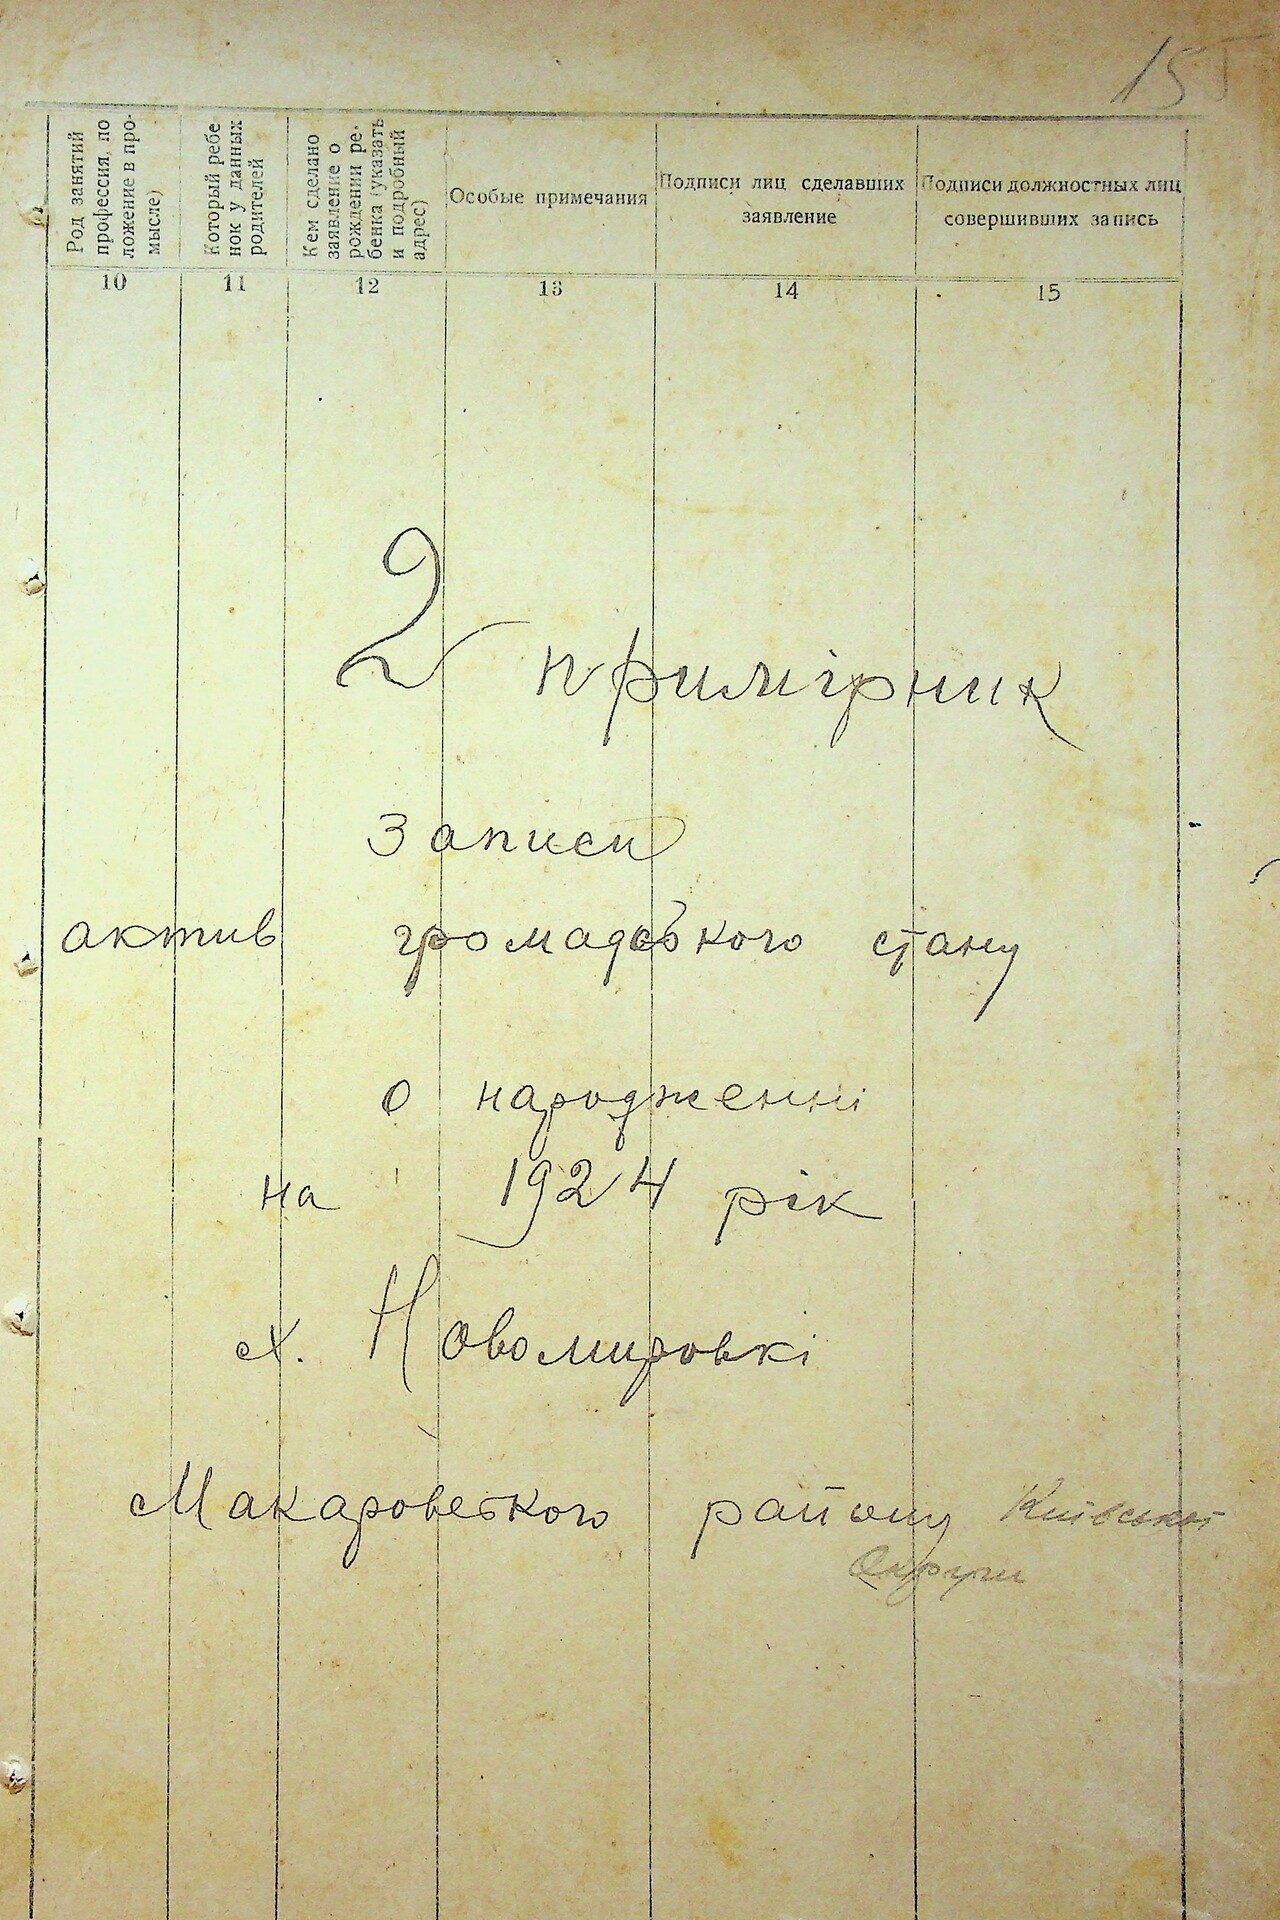 15
Род занятий
профессия, по
ложение в про-
мысле)
Который ребе
нок у данных
родителей
Кем сделано
заявление о
рождении ре-
бенка (указать
и подробный
адрес)
Особые примечания
Подписи лиц сделавших
заявление
Подписи должностных лиц
совершивших запись
10 11 12 13 14 15
2 примірник
Записи
актив громадського стану
о народженні
на 1924 рік
х. Новомировкі
Макаровського району Київської
Округи